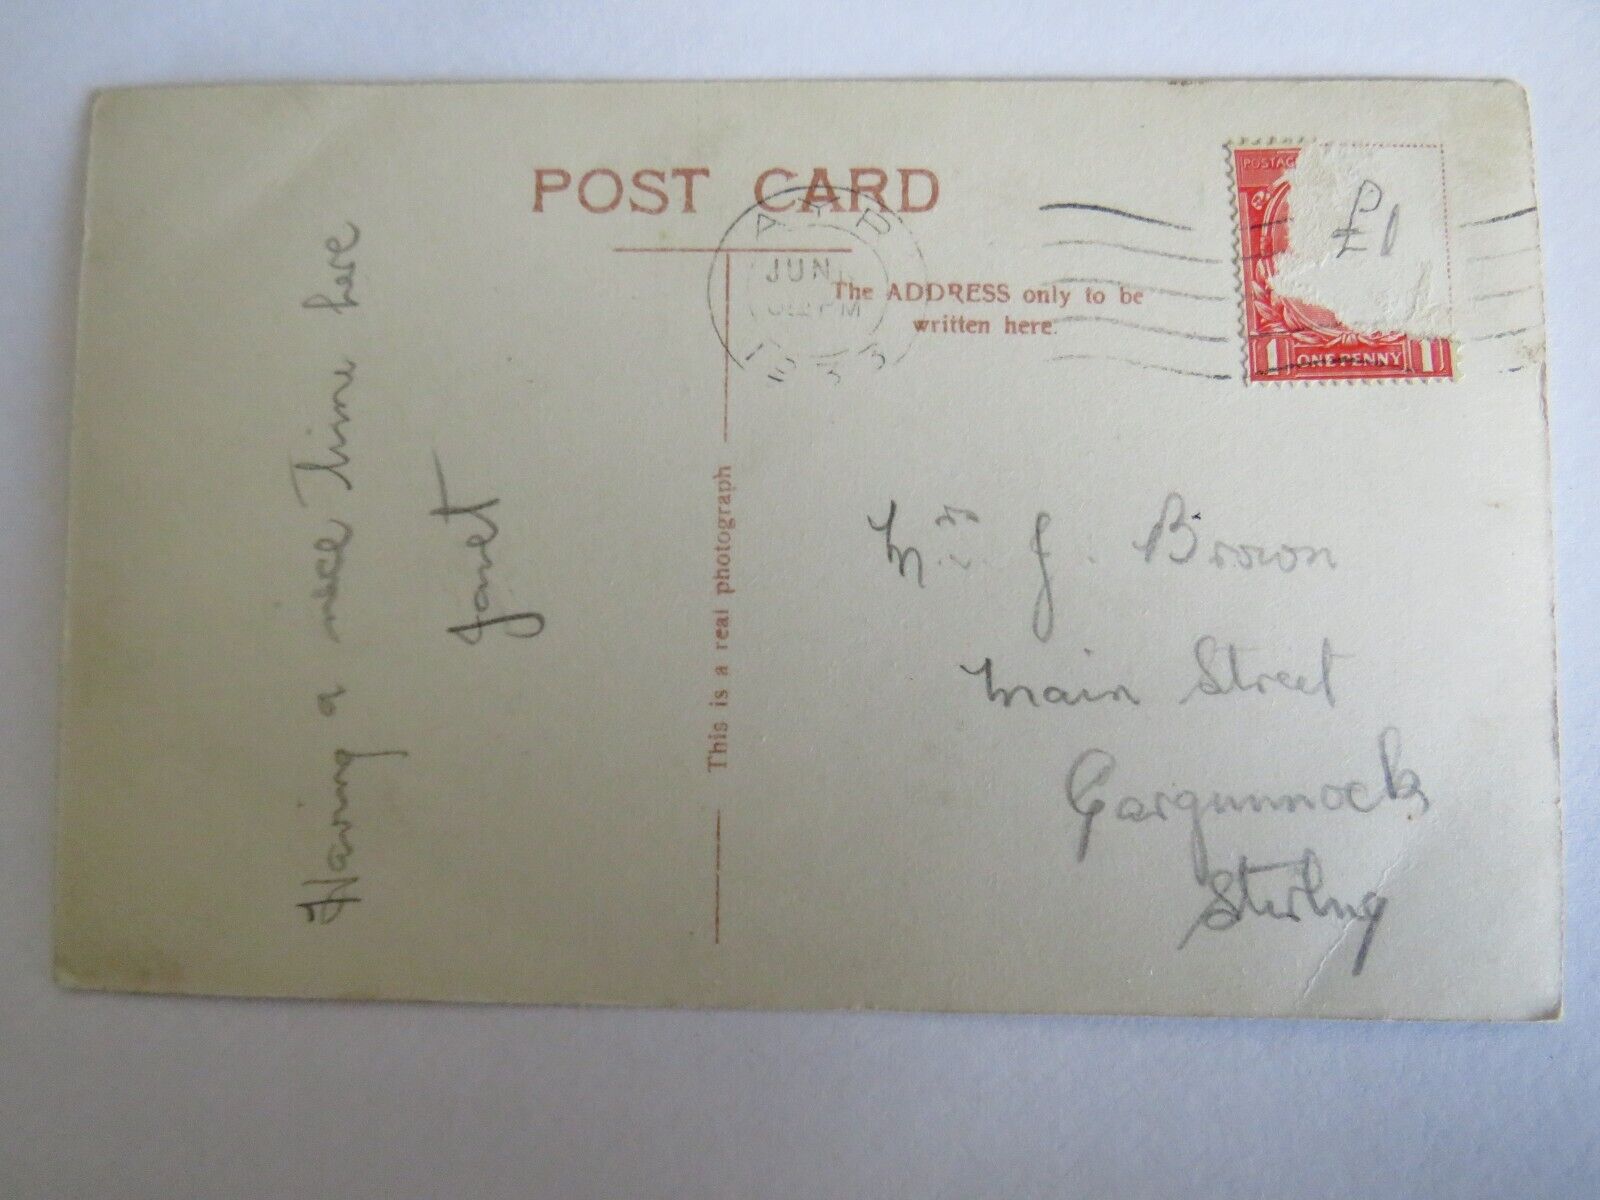 POST CARD
The ADDRESS only to be
written here.
This is a real photograph
Having a nice Time here
Janet
Mrs. J. Brown
Main Street
Gargunnock
Stirling
AYR
JUN
1933
POSTAGE
£1
1 ONE PENNY 1